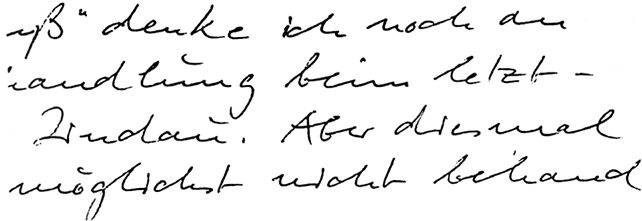 uß" denke ich noch an
handlung beim letzt-
Lindau. Aber diesmal
möglichst nicht behand